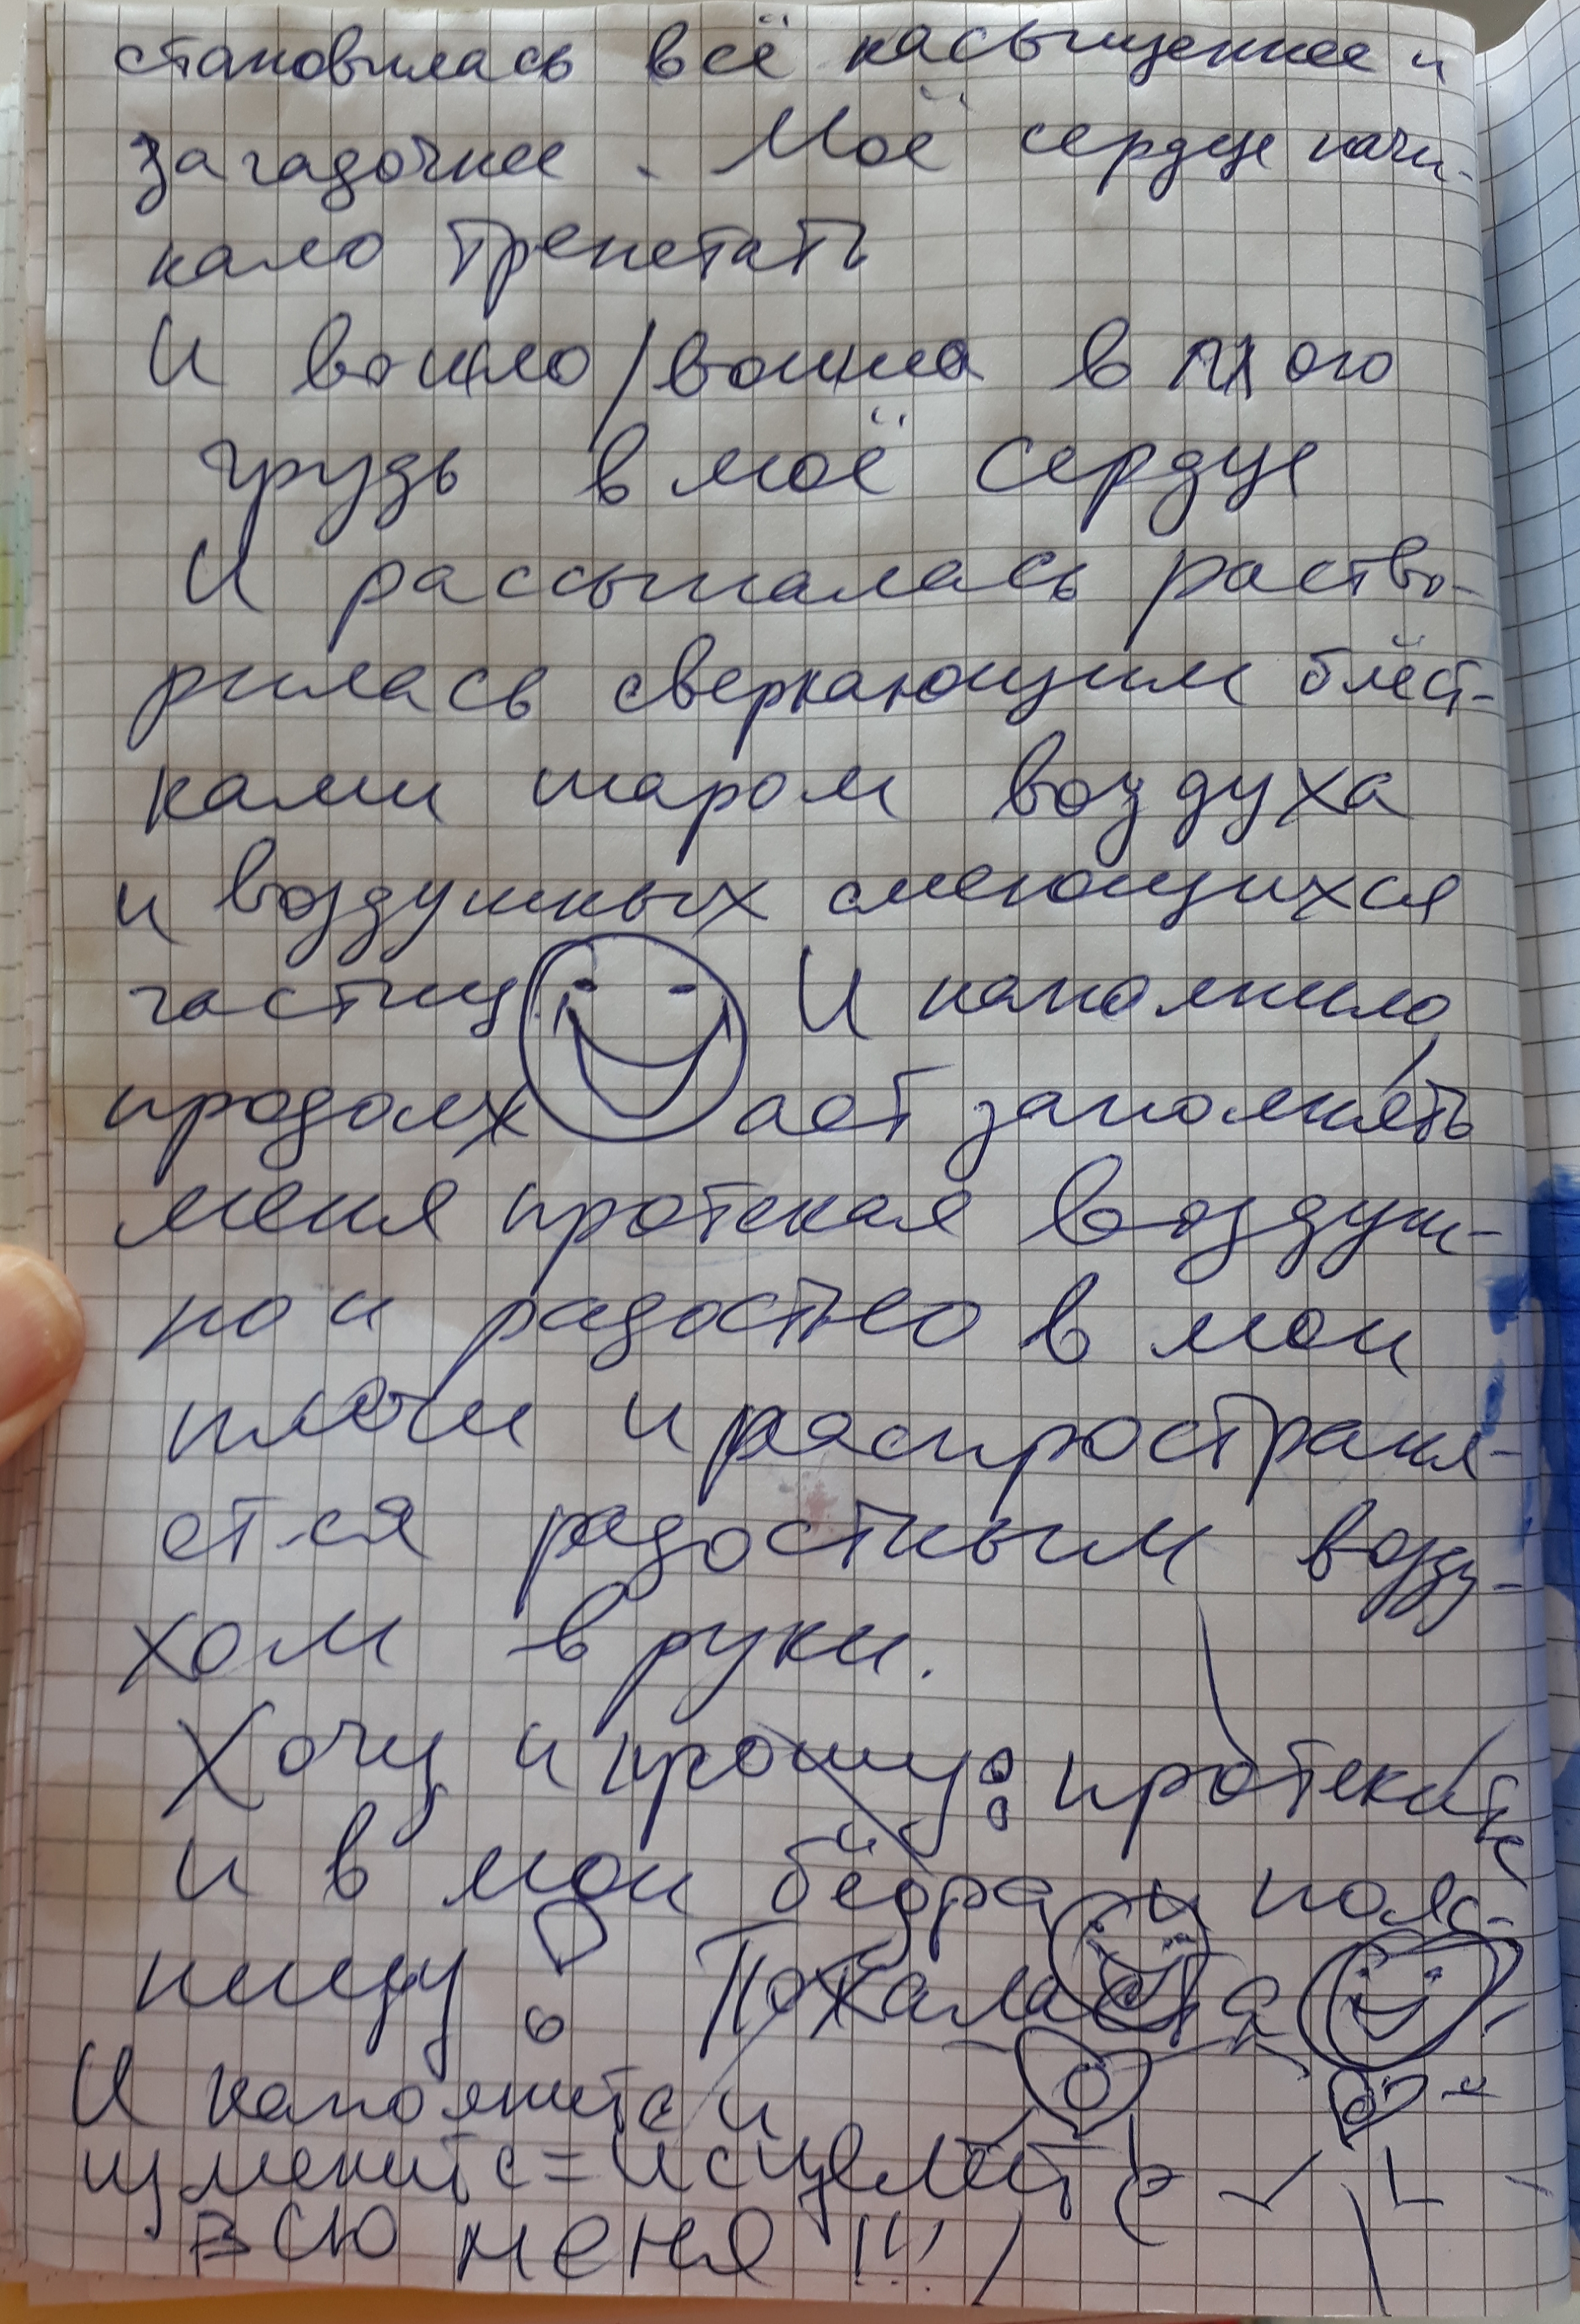 становилась всё насыщеннее и
загадочнее. Моё сердце начи-
нало трепетать
И вошло/вошла в мою
грудь в моё сердце
И рассыпалась раство-
рилась сверкающим блёст-
ками шаром воздуха
и воздушных смеющихся
частиц И наполнило,
продолжает заполнять
меня протекая воздуш-
ной радостью в мои
плечи и распространя-
ется радостным возду-
хом в руки.
Хочу и прошу: протеките
и в мои бёдра и пояс-
ницу! Пожалуйста
И наполните и
измените=исцелите
всю меня!!!